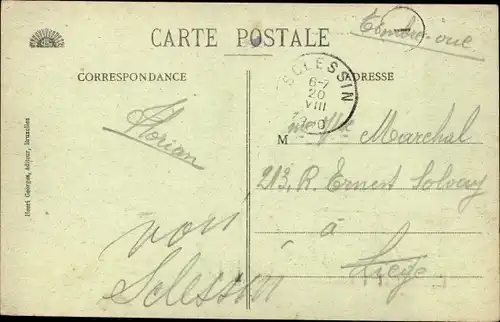 Timbre-vue
CARTE POSTALE
CORRESPONDANCE
ADRESSE
SCLESSIN
6-7
20
VIII
Florian
M Marchal
213, R. Ernest Solvay
à
Liège
voir
Sclessin
Henri Georges, éditeur, Bruxelles